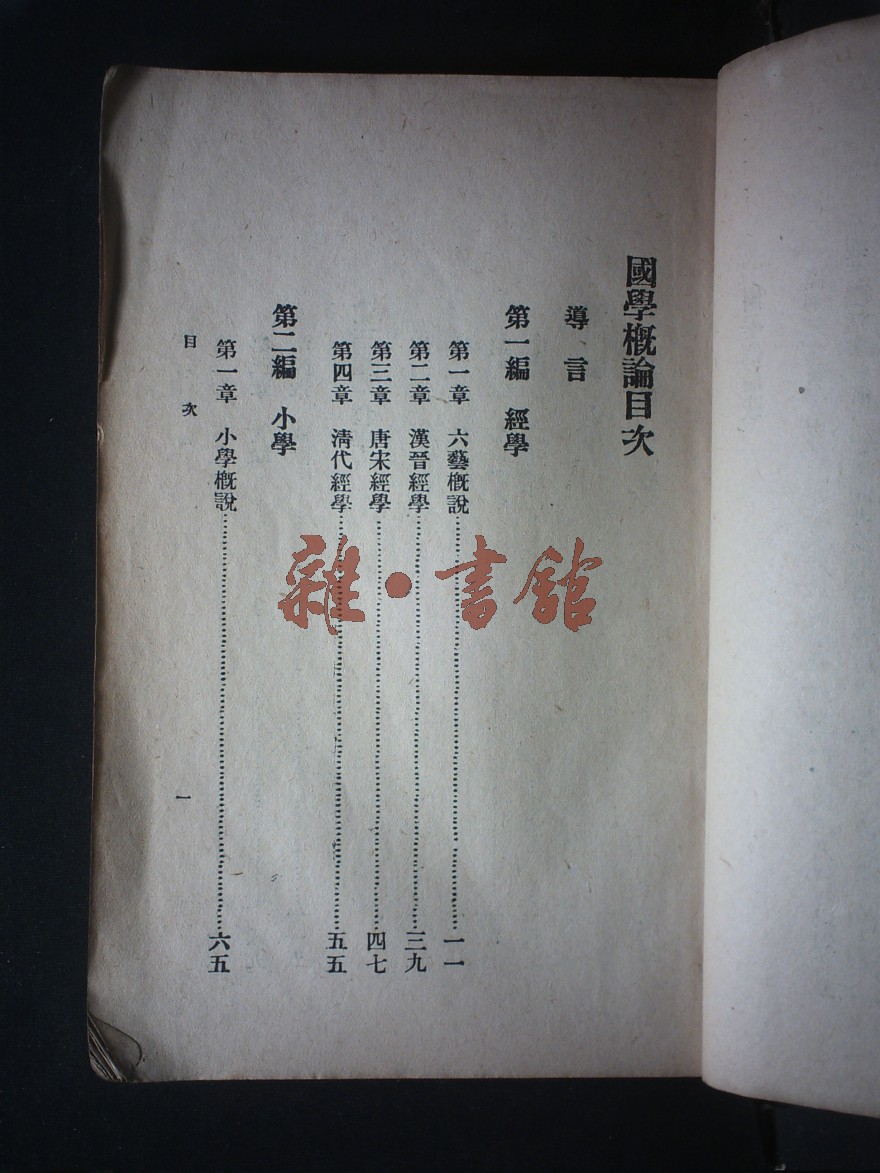 國學概論目次
導言
第一編 經學
第一章 六藝概說……一一
第二章 漢晉經學……三九
第三章 唐宋經學……四七
第四章 清代經學……五五
第二編 小學
第一章 小學概說……六五
目次
一
雜·書館